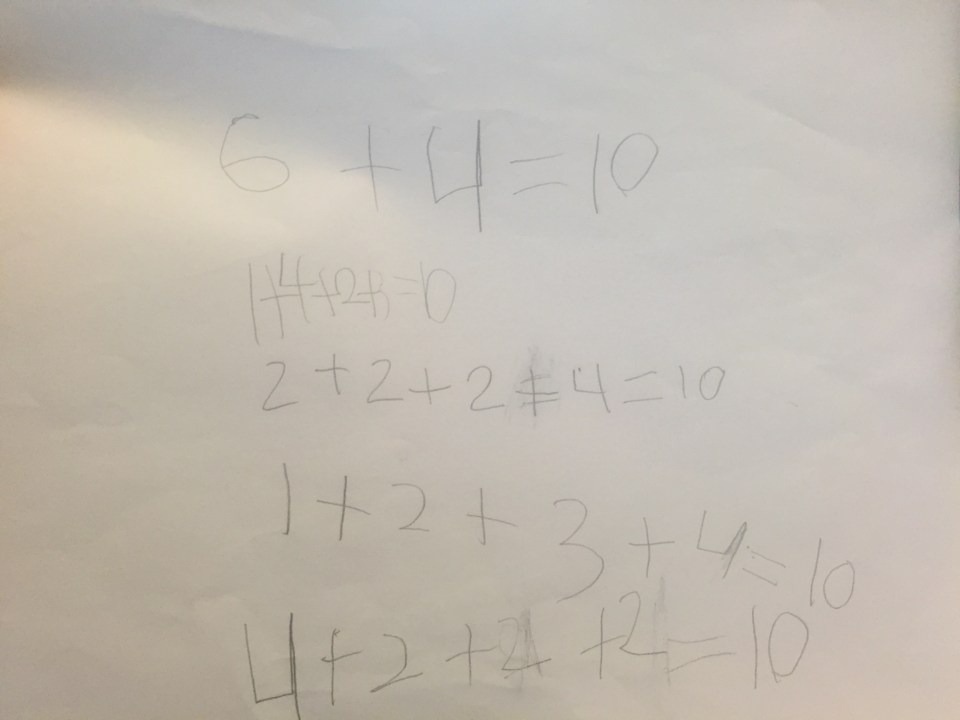 6 + 4 = 10
1+4+2+3=10
2 + 2 + 2 + 4 = 10
1 + 2 + 3 + 4 = 10
4 + 2 + 2 + 2 = 10